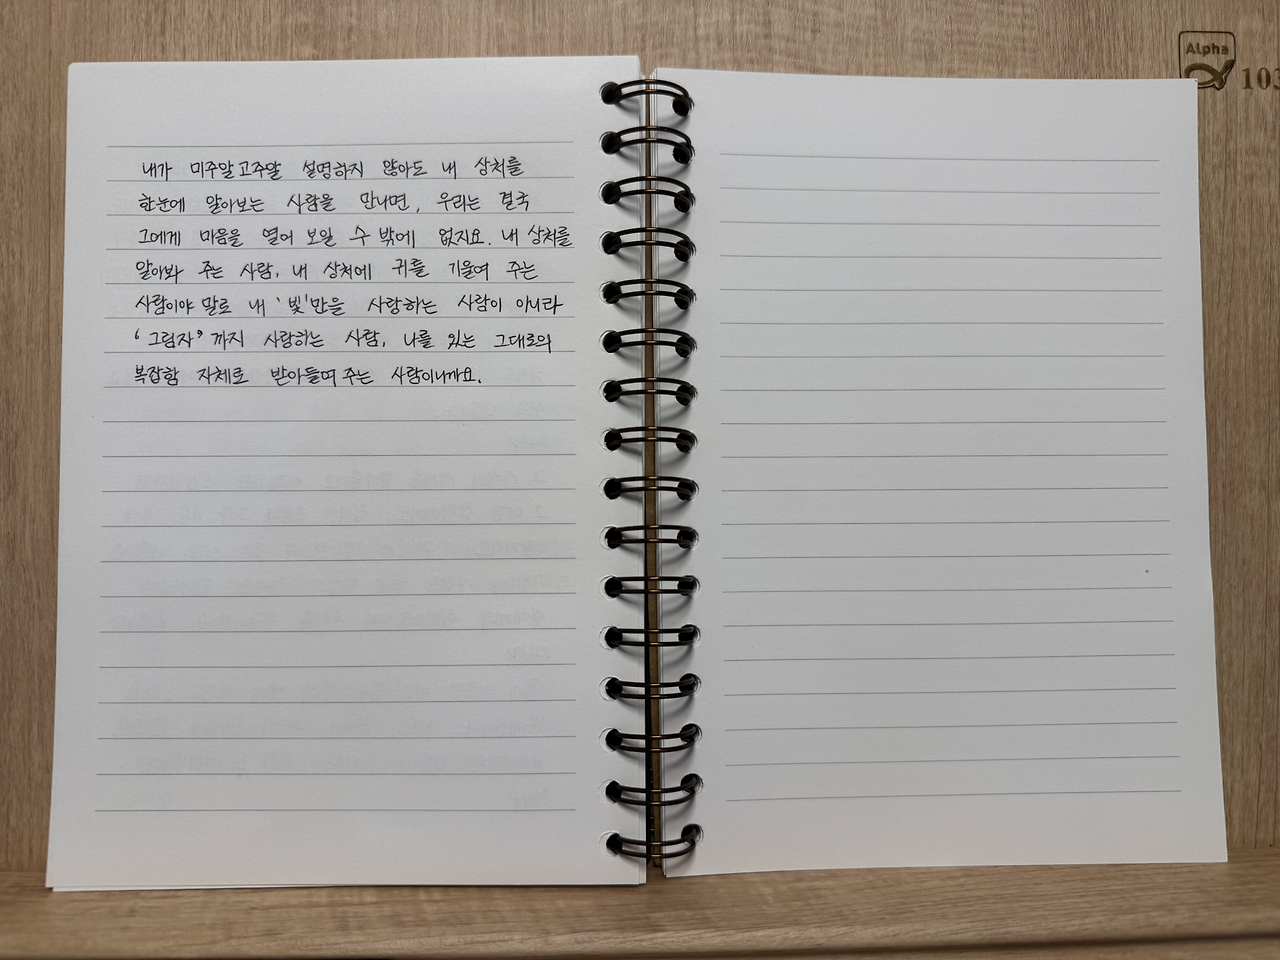 내가 미주알고주알 설명하지 않아도 내 상처를
한눈에 알아보는 사람을 만나면, 우리는 결국
그에게 마음을 열어 보일 수 밖에 없지요. 내 상처를
알아봐 주는 사람, 내 상처에 귀를 기울여 주는
사람이야 말로 내 '빛'만을 사랑하는 사람이 아니라
'그림자'까지 사랑하는 사람, 나를 있는 그대로의
복잡함 자체로 받아들여 주는 사람이니까요.
Alpha
103